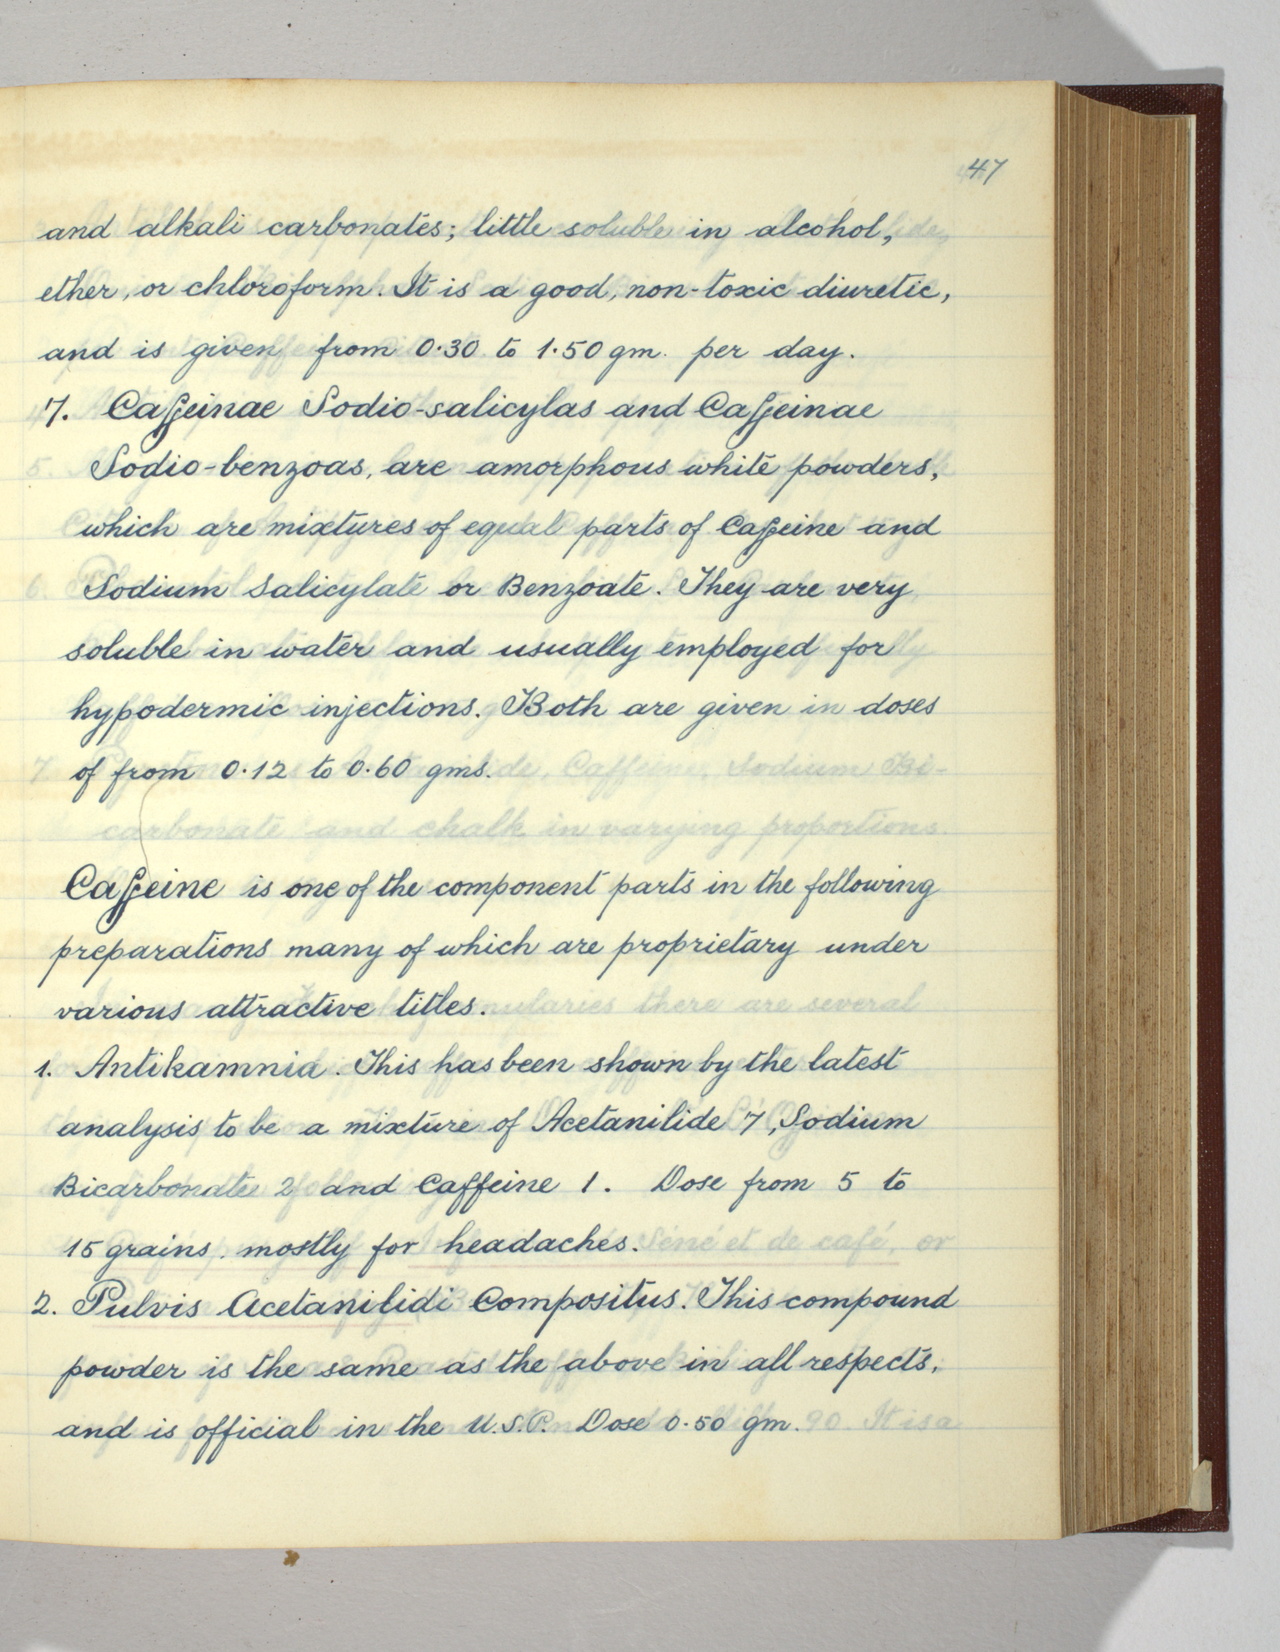 47
and alkali carbonates; little soluble in alcohol,
ether, or chloroform. It is a good, non-toxic diuretic,
and is given from 0.30 to 1.50 gm. per day.
7. Caffeinae Sodio-salicylas and Caffeinae
Sodio-benzoas, are amorphous white powders,
which are mixtures of equal parts of Caffeine and
Sodium Salicylate or Benzoate. They are very
soluble in water and usually employed for
hypodermic injections. Both are given in doses
of from 0.12 to 0.60 gms.
Caffeine is one of the component parts in the following
preparations many of which are proprietary under
various attractive titles.
1. Antikamnia. This has been shown by the latest
analysis to be a mixture of Acetanilide 7, Sodium
Bicarbonate 2 and Caffeine 1. Dose from 5 to
15 grains, mostly for headaches.
2. Pulvis Acetanilidi Compositus. This compound
powder is the same as the above in all respects,
and is official in the U.S.P. Dose 0.50 gm.